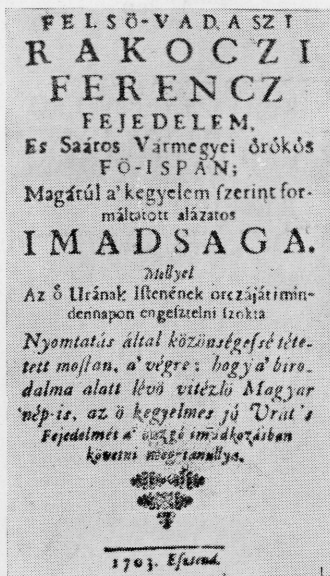 FELSÖ-VADASZI
RAKOCZI
FERENCZ
FEJEDELEM,
Es Saáros Vármegyei örökös
FÖ-ISPÁN;
Magátúl a' kegyelem szerint for-
máltatott alázatos
IMADSAGA.
Mellyel
Az ő Urának Istenének orczáját min-
dennapon engesztelni szokta
Nyomtatás által közönségessé téte-
tett mostan, a' végre; hogy a' biro-
dalma alatt lévő vitézlő Magyar
nép-is, az ő kegyelmes jó Urát 's
Fejedelmét a' buzgó imádkozásban
követni meg-tanullya.
1703. Esztend.